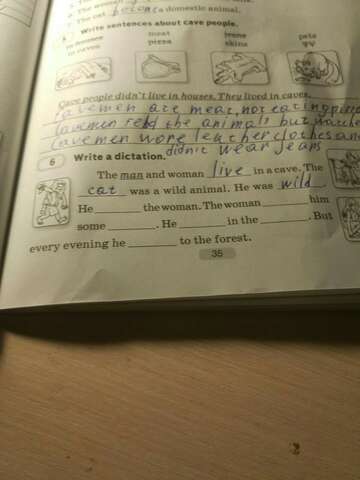 The woman
The cat became a domestic animal.
Write sentences about cave people.
in houses meat jeans pets
in caves pizza skins
Cave people didn't live in houses. They lived in caves.
cavemen ate meat, not eating
cavemen the animals but
cavemen wore leather clothes and
didn't wear jeans
6 Write a dictation.
The man and woman live in a cave. The
cat was a wild animal. He was wild
He the woman. The woman him
some . He in the . But
every evening he to the forest.
35